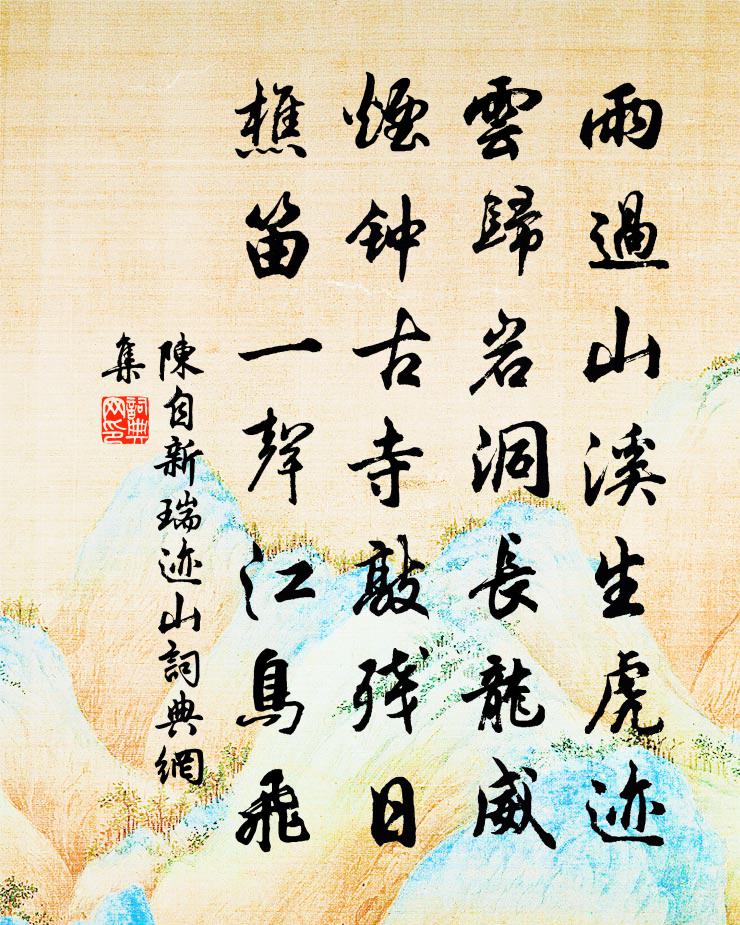 雨過山溪生虎迹
雲歸岩洞長龍威
煙钟古寺敲残日
樵笛一聲江鳥飛
陳自新瑞迹山詞典網
集
詞典网印